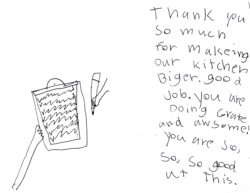 Thank you
so much
for makeing
our kitchen
Biger. good
job. you are
Doing Grate
and awsome!
you are so,
so, so good
ut This.